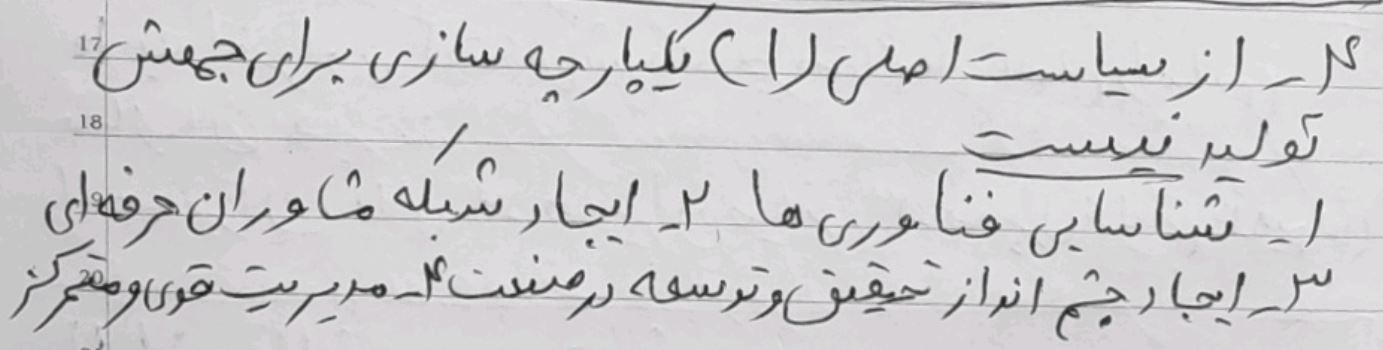 17
۴ـ از سیاست اصلی (۱) یکپارچه سازی برای جهش
18
تولید نیست
۱ـ شناسایی فناوری ها ۲ـ ایجاد شبکه مشاوران حرفه‌ای
20
۳ـ ایجاد چشم انداز تحقیق و توسعه در صنعت ۴ـ مدیریت قوی و متمرکز